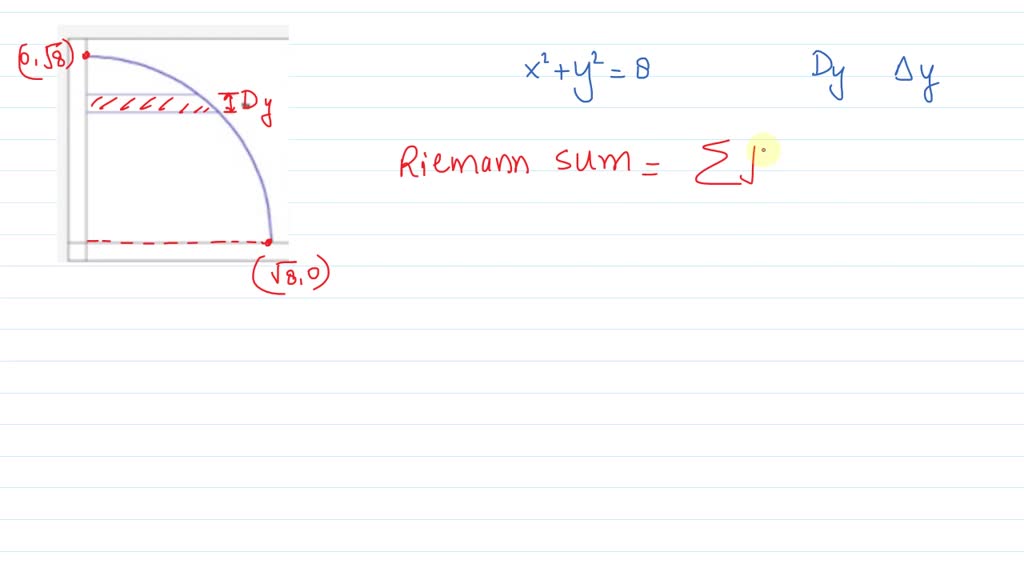 (0,√8)
Dy
(√8,0)
x²+y²=8 Dy Δy
Riemann sum = Σ